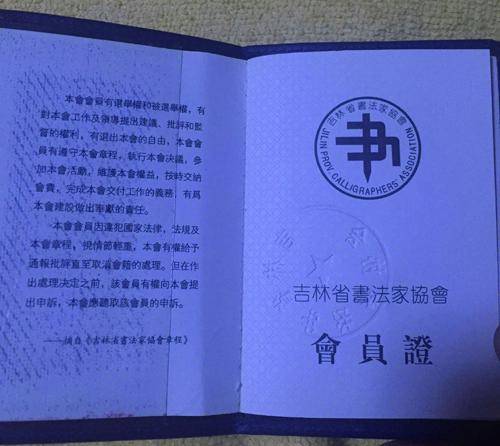 本會會員有選舉權和被選舉權，有
對本會工作及領導提出建議、批評和監
督的權利，有退出本會的自由，本會會
員有遵守本會章程，執行本會決議，參
加本會活動，維護本會權益，按時交納
會費，完成本會交付工作的義務，有爲
本會建設做出奉獻的責任。
本會會員因違犯國家法律，法規及
本會章程，撓情節輕重，本會有權給予
通報批評直至取消會籍的處理。但在作
出處理決定之前，該會員有權向本會提
出申訴，本會應聽取該會員的申訴。
——摘自《吉林省書法家協會章程》
吉林省書法家協會
JILIN PROV CALLIGRAPHERS ASSOCIATION
吉林省書法家協會
會員證